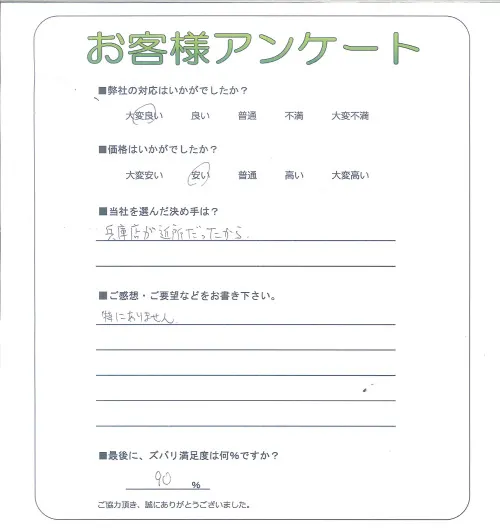 お客様アンケート
■弊社の対応はいかがでしたか？
大変良い 良い 普通 不満 大変不満
■価格はいかがでしたか？
大変安い 安い 普通 高い 大変高い
■当社を選んだ決め手は？
兵庫店が近所だったから.
■ご感想・ご要望などをお書き下さい。
特にありません
■最後に、ズバリ満足度は何％ですか？
90 ％
ご協力頂き、誠にありがとうございました。